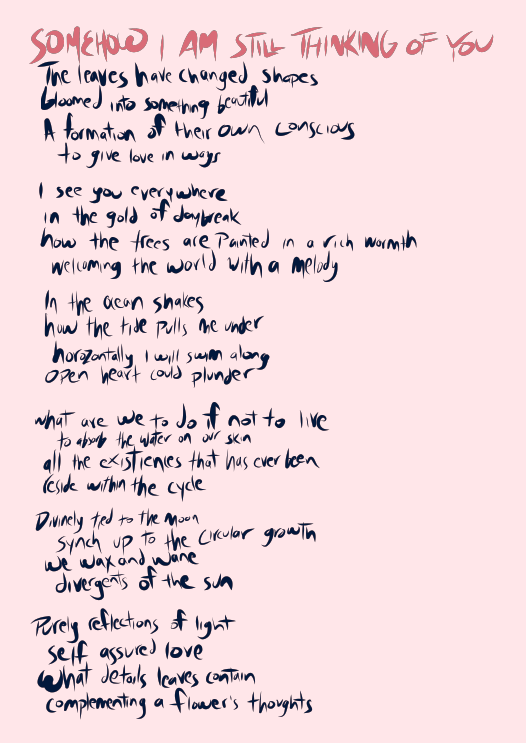 SOMEHOW I AM STILL THINKING OF YOU
The leaves have changed shapes
bloomed into something beautiful
A formation of their own conscious
to give love in ways
I see you everywhere
in the gold of daybreak
how the trees are Painted in a rich warmth
welcoming the world with a melody
In the ocean shakes
how the tide pulls me under
horozontally I will swim along
open heart could plunder
what are we to do if not to live
to absorb the water on our skin
all the existienies that has ever been
reside within the cycle
Divinely tied to the moon
synch up to the circular growth
we wax and wane
divergents of the sun
Purely reflections of light
self assured love
what details leaves contain
complementing a flower's thoughts